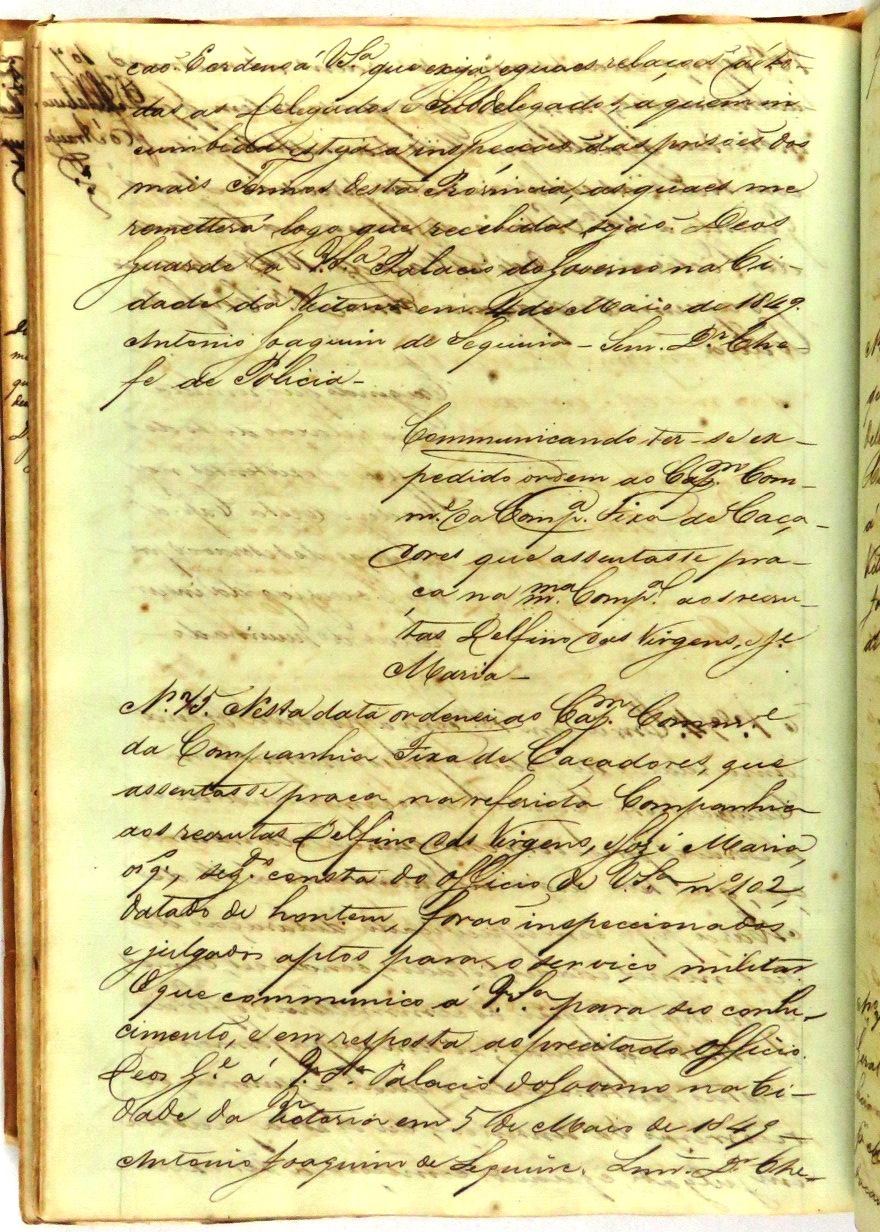 cao. E ordeno á V.Sa. que exija eguaes relaçoes de to-
das as Delegados e Subdelegados, a quem in
cumbida esteja a inspecção das prisões dos
mais Termos desta Provincia, as quaes me
remetterá logo que recebidas sejão. Deos
Guarde a V.Sa. Palacio do Governo na Ci-
dade da Victoria em 4 de Maio de 1849.
Antonio Joaquim de Siqueira - Snr. Dr. Che-
fe de Policia -
Communicando ter-se ex-
pedido ordem ao Capm. Com-
me. da Compa. Fixa de Caça-
dores que assentasse pra-
ça na mma. Compa. aos recru-
tas Delfino das Virgens, e Je.
Maria -
No. 75. Nesta data ordenei ao Capm. Comme.
da Companhia Fixa de Caçadores, que
assentasse praça na referida Companhia
aos recrutas Delfino das Virgens, e José Maria,
os qe., segdo. consta do officio de V.Sa. no. 102,
datado de hontem, forão inspeccionados
e julgados aptos para o serviço militar
O que communico á V.Sa. para seo conhe-
cimento, e em resposta ao precitado officio.
Deos Ge. á V.Sa. Palacio do Governo na Ci-
dade da Victoria em 5 de Maio de 1849 -
Antonio Joaquim de Siqueira. Snr. Dr. Che-